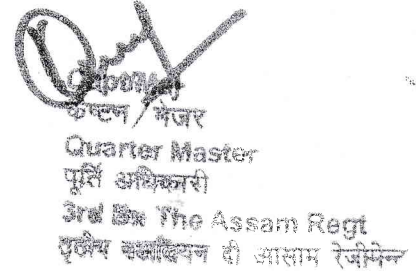 Capt/Maj
कप्टन / मेजर
Quarter Master
पूर्ति अधिकारी
3rd Bn The Assam Regt
तृतीय बटालियन दी आसाम रेजीमेन्ट